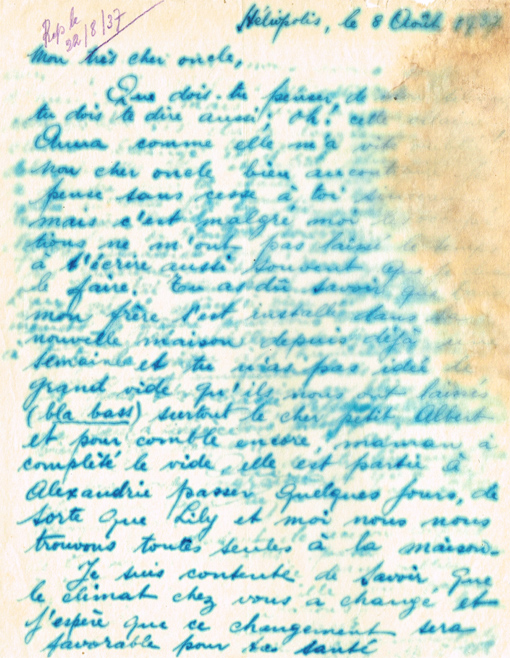 Rep le
22/8/37
Héliopolis, le 8 Août 1937
Mon très cher oncle,
Que dois-tu penser de
tu dois te dire aussi: oh! cette
Anna comme elle m'a vite
Non cher oncle bien au
pense sans cesse à toi
mais c'est malgré moi
tions ne m'ont pas laissé le
à t'écrire aussi souvent
le faire. Tu as dû savoir que
mon frère s'est installé dans
nouvelle maison depuis déjà
semaine et tu n'as pas idée
grand vide qu'ils nous ont laissé
(bla bass) surtout le cher petit Albert
et pour comble encore, maman a
complété le vide, elle est partie à
Alexandrie passer quelques jours, de
sorte que Lily et moi nous nous
trouvons toutes seules à la maison.
Je suis contente de savoir que
le climat chez vous a changé et
j'espère que ce changement sera
favorable pour ta santé